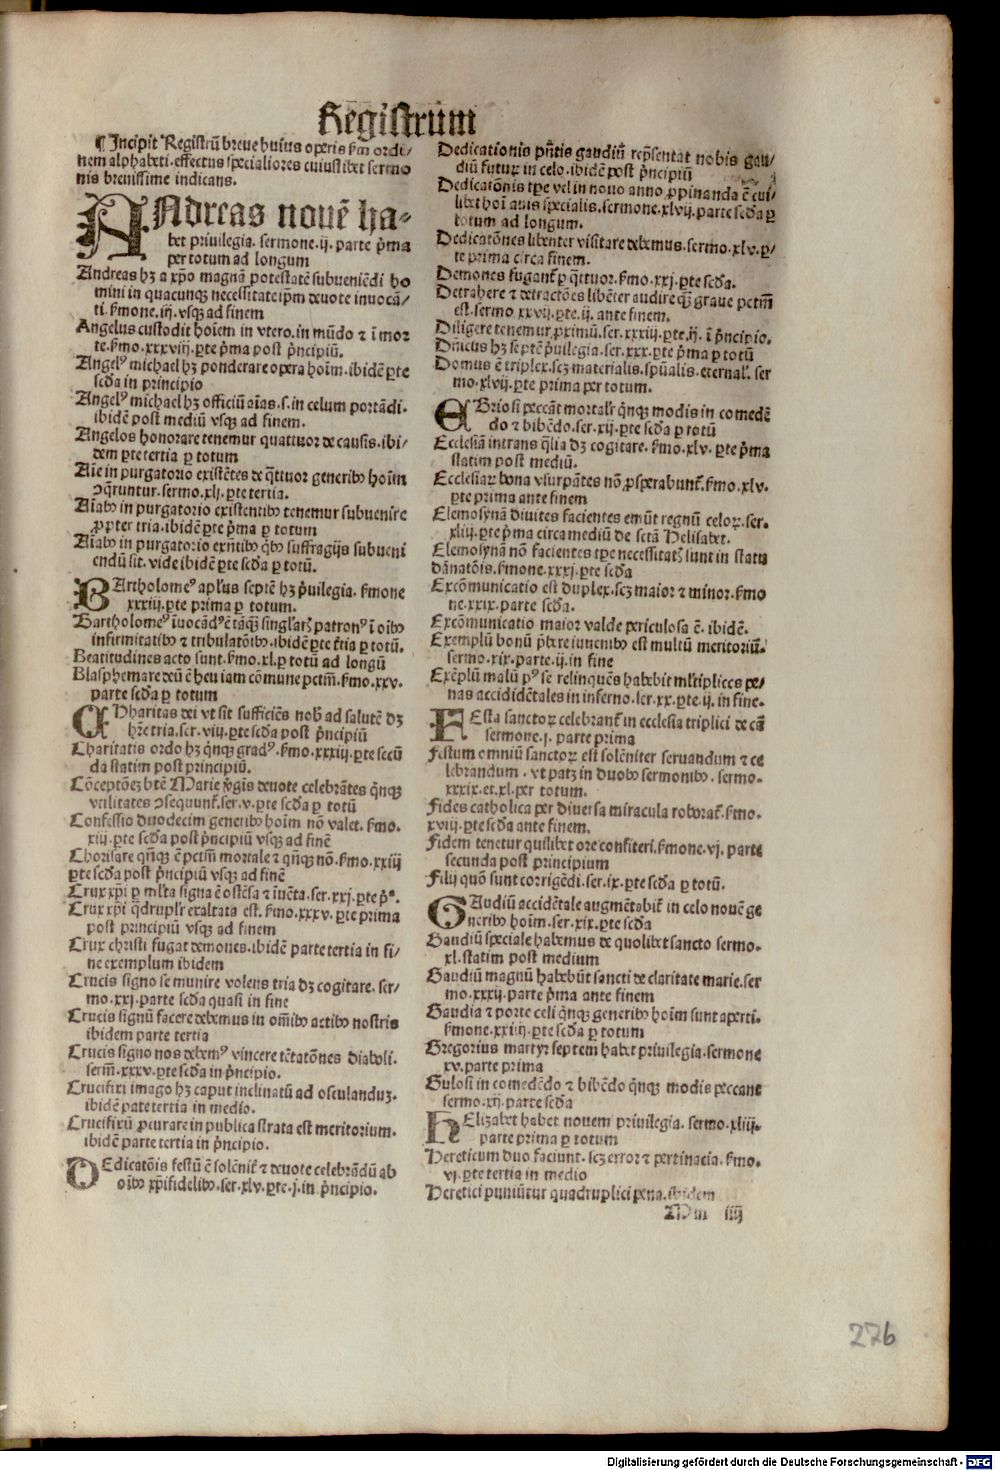 Registrum
¶ Incipit Registrū breue huius operis ẜm ordi-
nem alphabeti. effectus specialiores cuiuslibet sermo
nis breuissime indicans.
ANdreas nouē ha-
bet priuilegia. sermone .ij. parte p̄ma
per totum ad longum
Andreas hꝫ a xp̄o magnā potestatē subueniēdi ho
mini in quacunqꝫ necessitate ip̄m deuote inuocā-
ti. ẜmone .iij. vsqꝫ ad finem
Angelus custodit hoīem in vtero. in mūdo ⁊ ī mor
te. ẜmo .xxxviij. ꝑte p̄ma post p̄ncipiū.
Angelꝰ michael hꝫ ponderare opera hoīm. ibidē ꝑte
scd̄a in principio
Angelꝰ michael hꝫ officiū aīas. s. in celum portādi.
ibidē post mediū vsqꝫ ad finem.
Angelos honorare tenemur quattuor de causis. ibi-
dem ꝑte tertia ꝑ totum
Aīe in purgatorio existētes de q̄ttuor generibꝫ hoīm
ꝯq̄runtur. sermo .xlj. ꝑte tertia.
Aīabꝫ in purgatorio existentibꝫ tenemur subuenire
ꝓpter tria. ibidē ꝑte p̄ma ꝑ totum
Aīabꝫ in purgatorio exn̄tibꝫ q̄bꝫ suffragijs subueni
endū sit. vide ibidē ꝑte scd̄a ꝑ totū.
BArtholomeꝰ apl̄us septē hꝫ p̄uilegia. ẜmone
xxxiij. ꝑte prima ꝑ totum.
Bartholomeꝰ īuocādꝰ ē tāqꝫ singl̄arꝭ patronꝰ ī oībꝫ
infirmitatibꝫ ⁊ tribulatōibꝫ. ibidē ꝑte t̄tia ꝑ totū.
Beatitudines acto sunt. ẜmo .xl. ꝑ totū ad longū
Blasphemare deū ē heu iam cōmune pctm̄. ẜmo .xxv.
parte scd̄a ꝑ totum
CHharitas dei vt sit sufficiēs nob̄ ad salutē dꝫ
hr̄e tria. ser. viij. ꝑte scd̄a post p̄ncipiū
Charitatis ordo hꝫ q̄nqꝫ gradꝰ. ẜmo .xxxiij. ꝑte secū
da statim post principiū.
Cōceptōeꝫ btē Marie v̄gis deuote celebrātes q̄nqꝫ
vtilitates ꝯsequunt̄. ser. v. ꝑte scd̄a ꝑ totū
Confessio duodecim generibꝫ hoīm nō valet. ẜmo.
xiij. ꝑte scd̄a post p̄ncipiū vsqꝫ ad finē
Chorisare qn̄qꝫ ē pctm̄ mortale ⁊ qn̄qꝫ nō. ẜmo .xxiij
ꝑte scd̄a post p̄ncipiū vsqꝫ ad finē
Crux xp̄i ꝑ ml̄ta signa ē ostēsa ⁊ īuēta. ser. xxj. ꝑte pᵃ.
Crux xp̄i q̄drupl̄r exaltata est. ẜmo .xxxv. ꝑte prima
post principiū vsqꝫ ad finem
Crux christi fugat demones. ibidē parte tertia in fi-
ne exemplum ibidem
Crucis signo se munire volens tria dꝫ cogitare. ser-
mo. xxj. parte scd̄a quasi in fine
Crucis signū facere debemus in om̄ibꝫ actibꝫ nostris
ibidem parte tertia
Crucis signo nos debemꝰ vincere tētatōnes diaboli.
serm̄. xxxv. ꝑte scd̄a in p̄ncipio.
Crucifixi imago hꝫ caput inclinatū ad osculanduꝫ.
ibidē pate tertia in medio.
Crucifixū ꝓcurare in publica strata est meritorium.
ibidē parte tertia in p̄ncipio.
DEdicatōis festū ē solēnit̄ ⁊ deuote celebrādū ab
oībꝫ xp̄ifidelibꝫ. ser. xlv. ꝑte .j. in p̄ncipio.
Dedicationis pn̄tis gaudiū rep̄sentat nobis gau-
diū futuꝝ in celo. ibidē post p̄ncipiū
Dedicatōnis tꝑe vel in nouo anno ꝓpinanda ē cui-
libet hoī auis specialis. sermone .xlvij. parte scd̄a ꝑ
totum ad longum.
Dedicatōnes libenter visitare debemus. sermo .xlv. ꝑ-
te prima circa finem.
Demones fugant̄ ꝑ q̄ttuor. ẜmo .xxj. ꝑte scd̄a.
Detrahere ⁊ detractōes libēter audire qꝫ graue pctm̄
est. sermo xxvij. ꝑte .ij. ante finem.
Diligere tenemur ꝓximū. ser. xxxiij. ꝑte .ij. ī p̄ncipio.
Dn̄icus hꝫ septē p̄uilegia. ser. xxx. ꝑte p̄ma ꝑ totū
Domus ē triplex. scꝫ materialis. spūalis. eternal̄. ser
mo. xlvij. ꝑte prima per totum.
EBriosi peccāt mortalr̄ q̄nqꝫ modis in comedē
do ⁊ bibēdo. ser. xij. ꝑte scd̄a ꝑ totū
Ecclesiā intrans q̄lia dꝫ cogitare. ẜmo .xlv. ꝑte p̄ma
statim post mediū.
Ecclesiaꝝ bona vsurpātes nō ꝓsperabunt̄. ẜmo .xlv.
ꝑte prima ante finem
Elemosynā diuites facientes emūt regnū celoꝝ. ser.
xliij. ꝑte p̄ma circa mediū de sctā Helisabet.
Elemosynā nō facientes tꝑe necessitatꝭ sunt in statu
dānatōis. ẜmone .xxxj. ꝑte scd̄a
Excōmunicatio est duplex. scꝫ maior ⁊ minor. ẜmo
ne. xxix. parte scd̄a.
Excōmunicatio maior valde periculosa ē. ibidē.
Exemplū bonū p̄bere iuuenibꝫ est multū meritoriū.
sermo. xix. parte .ij. in fine
Exēplū malū pꝰ se relinquēs habebit ml̄tiplices pe-
nas accididētales in inferno. ser. xx. ꝑte .ij. in fine.
FEsta sanctoꝝ celebrant̄ in ecclesia triplici de cā
sermone .j. parte prima
Festum omniū sanctoꝝ est solēniter seruandum ⁊ ce
lebrandum. vt patꝫ in duobꝫ sermonibꝫ. sermo.
xxxix. et. xl. per totum.
Fides catholica per diuersa miracula roborat̄. ẜmo.
xviij. ꝑte scd̄a ante finem.
Fidem tenetur quilibet ore confiteri. ẜmone .vj. parte
secunda post principium
Filij quō sunt corrigēdi. ser. ix. ꝑte scd̄a ꝑ totū.
GAudiū accidētale augmētabit̄ in celo nouē ge
neribꝫ hoīm. ser. xix. ꝑte scd̄a
Gaudiū speciale habemus de quolibet sancto sermo.
xl. statim post medium
Gaudiū magnū habebūt sancti de claritate marie. ser
mo. xxxij. parte p̄ma ante finem
Gaudia ⁊ porte celi q̄nqꝫ generibꝫ hoīm sunt aperti.
ẜmone .xxiij. ꝑte scd̄a ꝑ totum
Gregorius martyr septem habet priuilegia. sermone
xv. parte prima
Gulosi in comedēdo ⁊ bibēdo q̄nqꝫ modis peccant
sermo. xij. parte scd̄a
HElizabet habet nouem priuilegia. sermo. xliij.
parte prima ꝑ totum
Hereticum duo faciunt. scꝫ error ⁊ pertinacia. ẜmo.
vj. ꝑte tertia in medio
Heretici puniūtur quadruplici pena. ibidem
Mm iiij
276
Digitalisierung gefördert durch die Deutsche Forschungsgemeinschaft - DFG